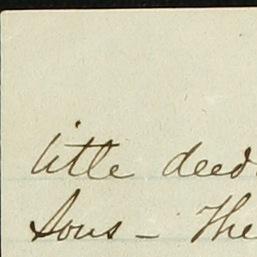 little deed
Sons – The